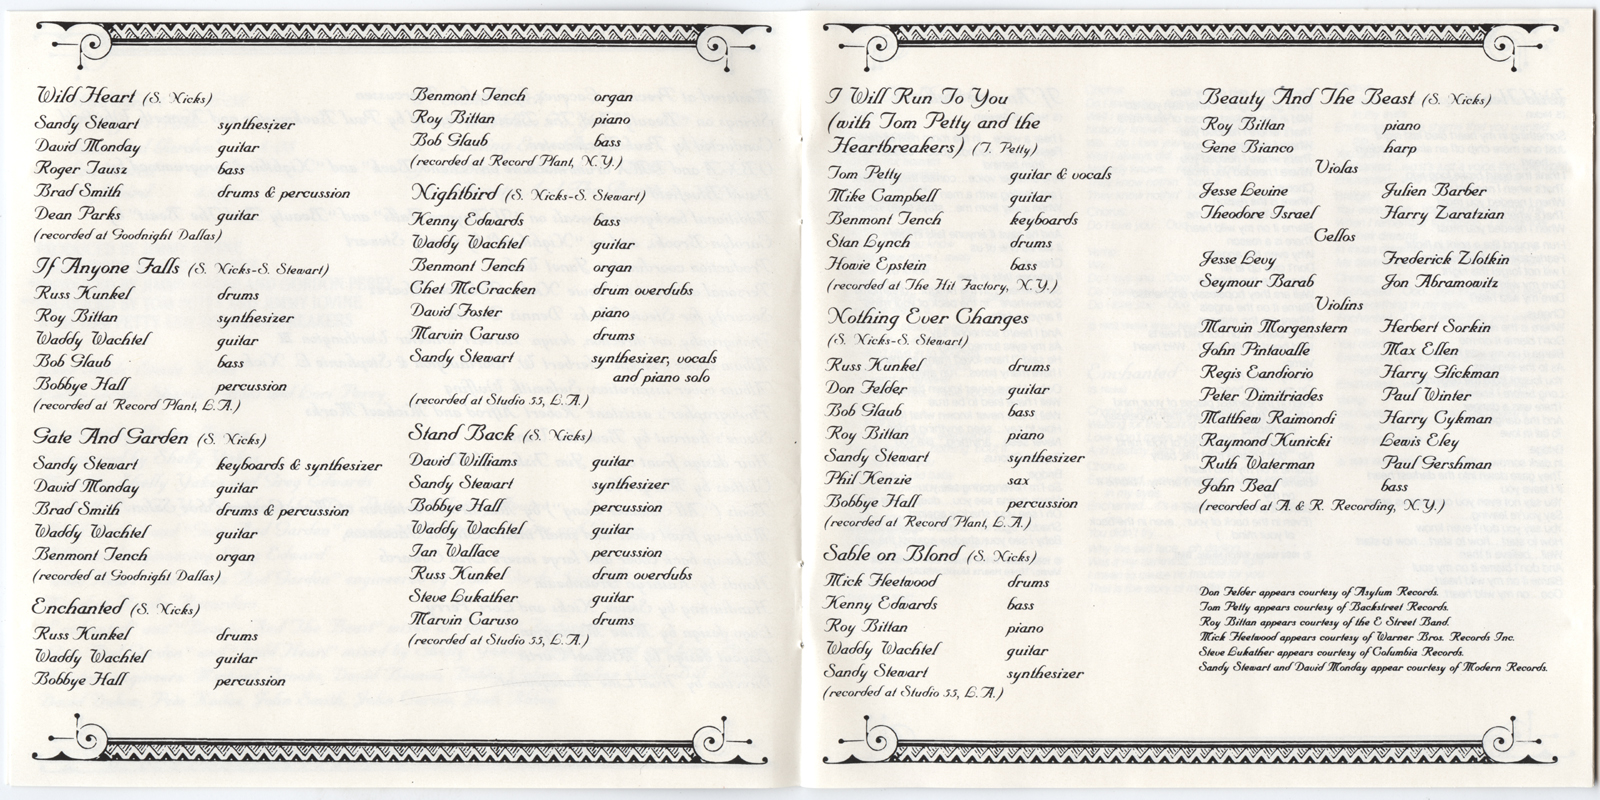 Wild Heart (S. Nicks)
Sandy Stewart synthesizer
David Monday guitar
Roger Tausz bass
Brad Smith drums & percussion
Dean Parks guitar
(recorded at Goodnight Dallas)
If Anyone Falls (S. Nicks-S. Stewart)
Russ Kunkel drums
Roy Bittan synthesizer
Waddy Wachtel guitar
Bob Glaub bass
Bobbye Hall percussion
(recorded at Record Plant, L.A.)
Gate And Garden (S. Nicks)
Sandy Stewart keyboards & synthesizer
David Monday guitar
Brad Smith drums & percussion
Waddy Wachtel guitar
Benmont Tench organ
(recorded at Goodnight Dallas)
Enchanted (S. Nicks)
Russ Kunkel drums
Waddy Wachtel guitar
Bobbye Hall percussion
Benmont Tench organ
Roy Bittan piano
Bob Glaub bass
(recorded at Record Plant, N.Y.)
Nightbird (S. Nicks-S. Stewart)
Kenny Edwards bass
Waddy Wachtel guitar
Benmont Tench organ
Chet McCracken drum overdubs
David Foster piano
Marvin Caruso drums
Sandy Stewart synthesizer, vocals
and piano solo
(recorded at Studio 55, L.A.)
Stand Back (S. Nicks)
David Williams guitar
Sandy Stewart synthesizer
Bobbye Hall percussion
Waddy Wachtel guitar
Ian Wallace percussion
Russ Kunkel drum overdubs
Steve Lukather guitar
Marvin Caruso drums
(recorded at Studio 55, L.A.)
I Will Run To You
(with Tom Petty and the
Heartbreakers) (T. Petty)
Tom Petty guitar & vocals
Mike Campbell guitar
Benmont Tench keyboards
Stan Lynch drums
Howie Epstein bass
(recorded at The Hit Factory, N.Y.)
Nothing Ever Changes
(S. Nicks-S. Stewart)
Russ Kunkel drums
Don Felder guitar
Bob Glaub bass
Roy Bittan piano
Sandy Stewart synthesizer
Phil Kenzie sax
Bobbye Hall percussion
(recorded at Record Plant, L.A.)
Sable on Blond (S. Nicks)
Mick Fleetwood drums
Kenny Edwards bass
Roy Bittan piano
Waddy Wachtel guitar
Sandy Stewart synthesizer
(recorded at Studio 55, L.A.)
Beauty And The Beast (S. Nicks)
Roy Bittan piano
Gene Bianco harp
Violas
Jesse Levine Julien Barber
Theodore Israel Harry Zaratzian
Cellos
Jesse Levy Frederick Zlotkin
Seymour Barab Jon Abramowitz
Violins
Marvin Morgenstern Herbert Sorkin
John Pintavalle Max Ellen
Regis Eandiorio Harry Glickman
Peter Dimitriades Paul Winter
Matthew Raimondi Harry Cykman
Raymond Kunicki Lewis Eley
Ruth Waterman Paul Gershman
John Beal bass
(recorded at A. & R. Recording, N.Y.)
Don Felder appears courtesy of Asylum Records.
Tom Petty appears courtesy of Backstreet Records.
Roy Bittan appears courtesy of the E Street Band.
Mick Fleetwood appears courtesy of Warner Bros. Records Inc.
Steve Lukather appears courtesy of Columbia Records.
Sandy Stewart and David Monday appear courtesy of Modern Records.